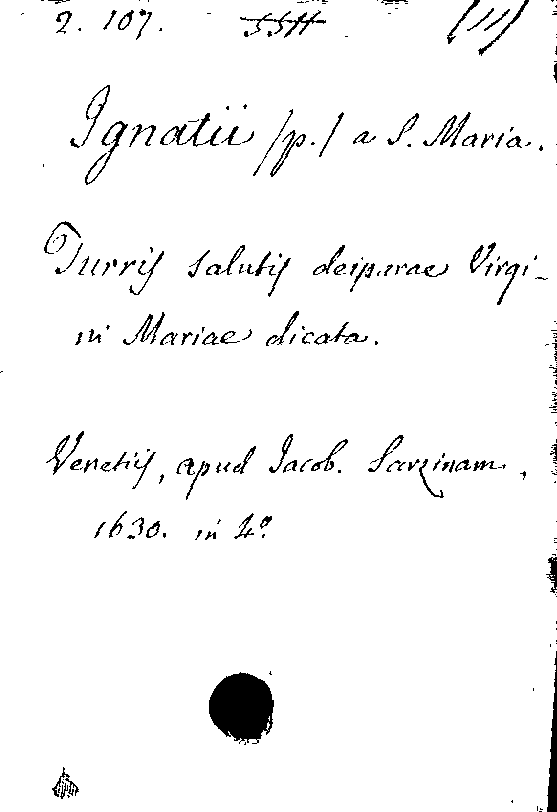 2. 107.
Ignatii /p./ a S. Maria.
Turris salutis deiparae Virgi-
ni Mariae dicata.
Venetiis, apud Jacob. Sarzinam,
1630. in 4º